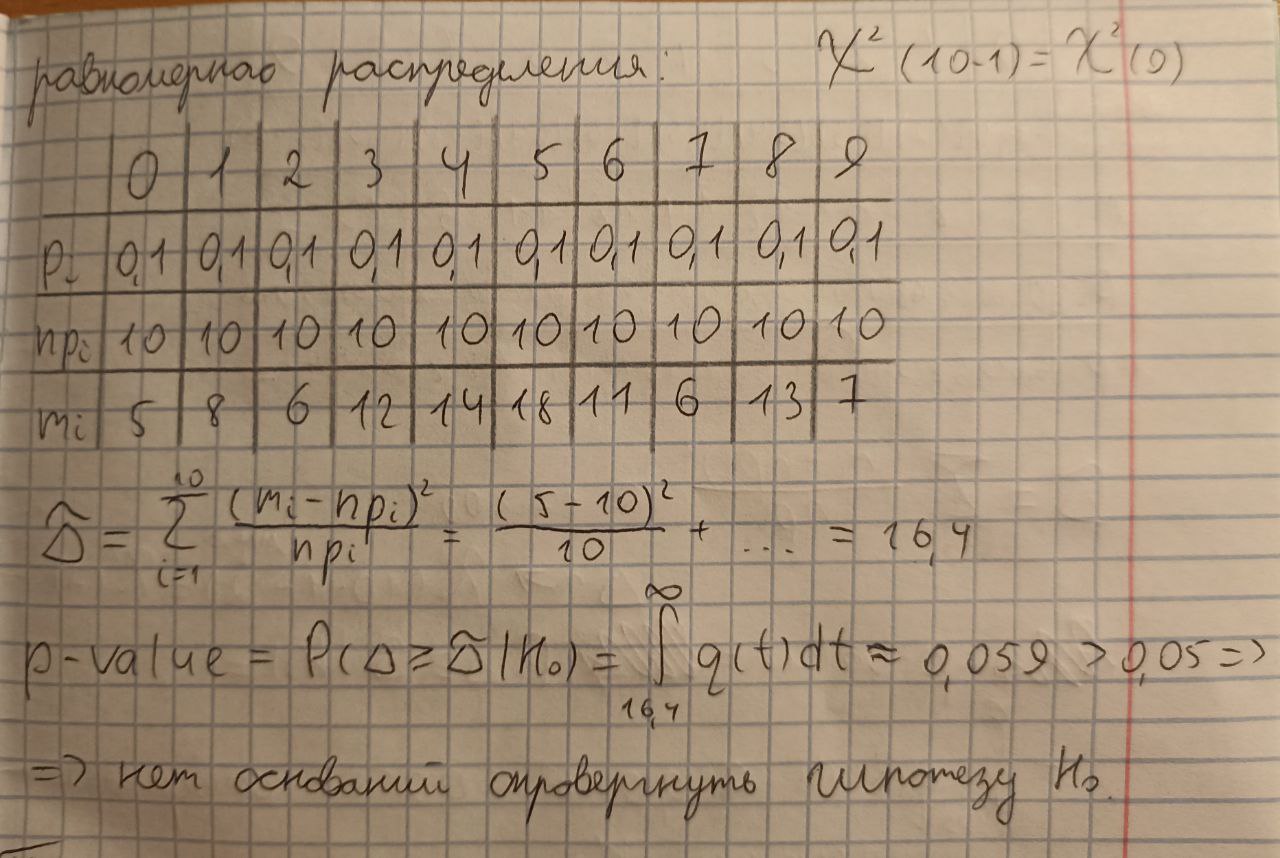 равномерного распределения: χ² (10-1) = χ² (9)
0 1 2 3 4 5 6 7 8 9
pᵢ 0,1 0,1 0,1 0,1 0,1 0,1 0,1 0,1 0,1 0,1
npᵢ 10 10 10 10 10 10 10 10 10 10
mᵢ 5 8 6 12 14 18 11 6 13 7
Δ̃ = Σᵢ₌₁¹⁰ (mᵢ - npᵢ)² / npᵢ = (5 - 10)² / 10 + ... = 16,4
p-value = P(Δ ≥ Δ̃ | H₀) = ∫₁₆,₄^∞ q(t)dt ≈ 0,059 > 0,05 =>
=> нет оснований опровергнуть гипотезу H₀.